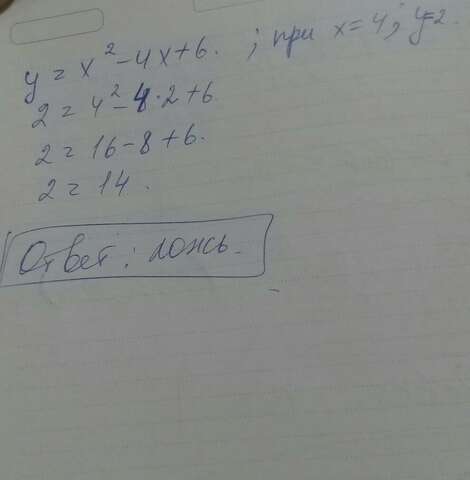 y = x² - 4x + 6. ; при x = 4; y = 2.
2 = 4² - 4 · 2 + 6
2 = 16 - 8 + 6.
2 = 14.
Ответ: ложь.